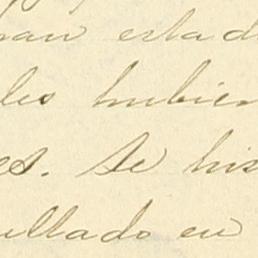 ran estad
les hubier
es. Se his
ullado en